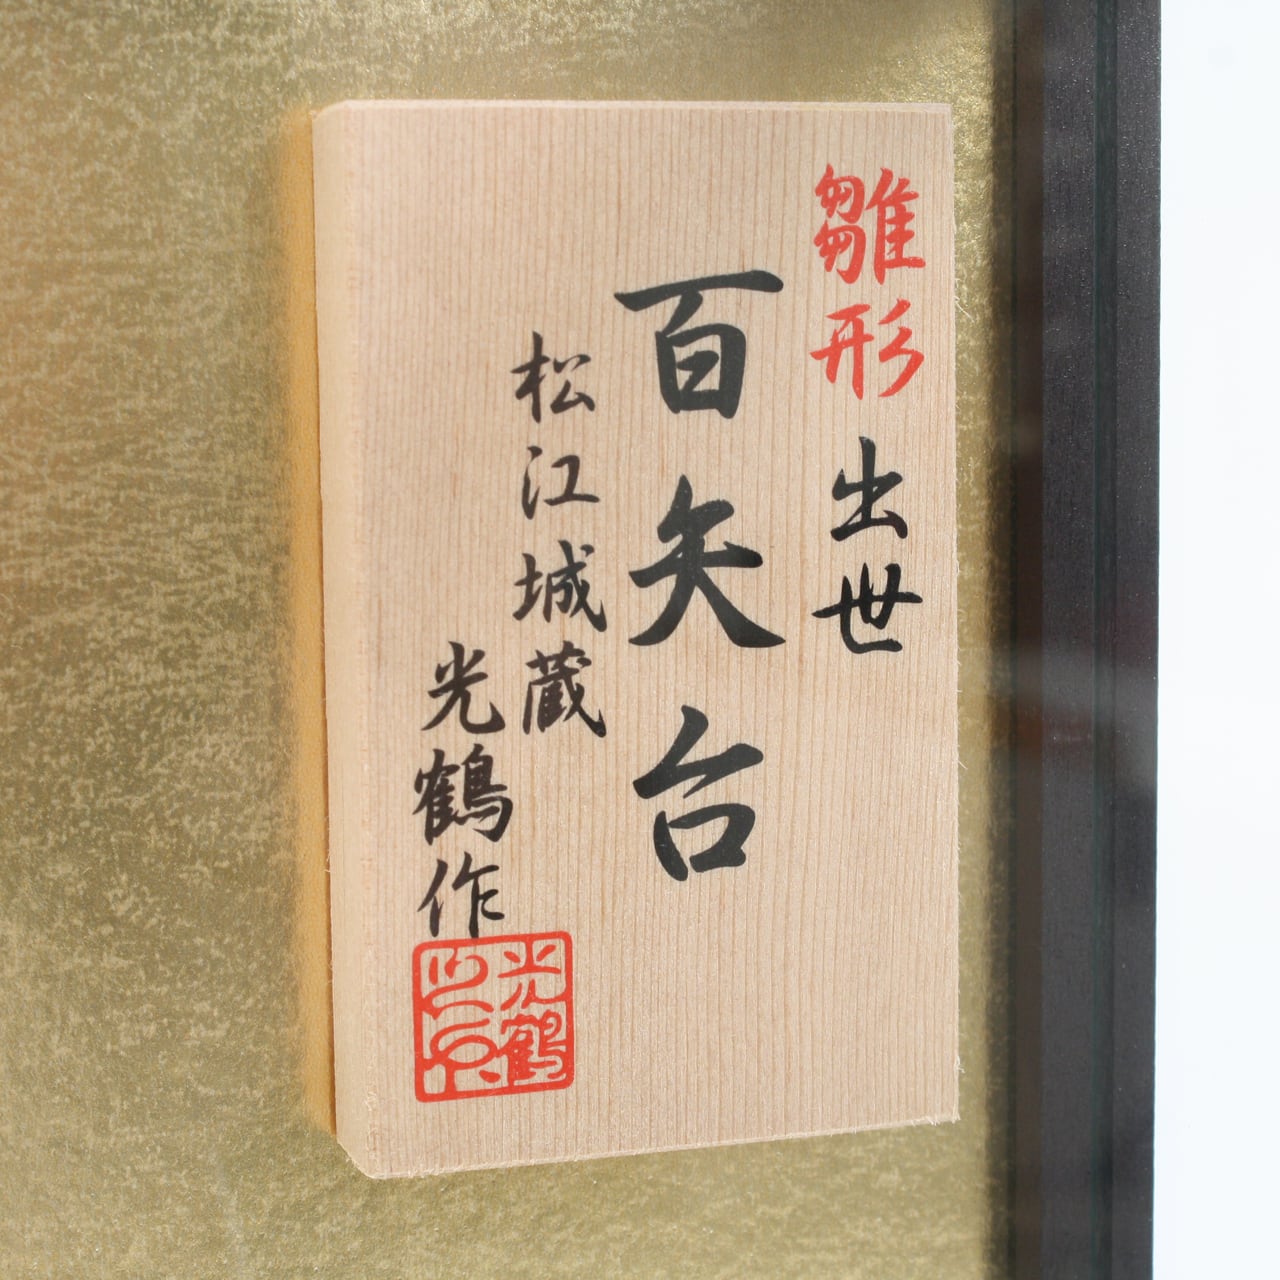 雛形 出世
百矢台
松江城蔵
光鶴作
光鶴